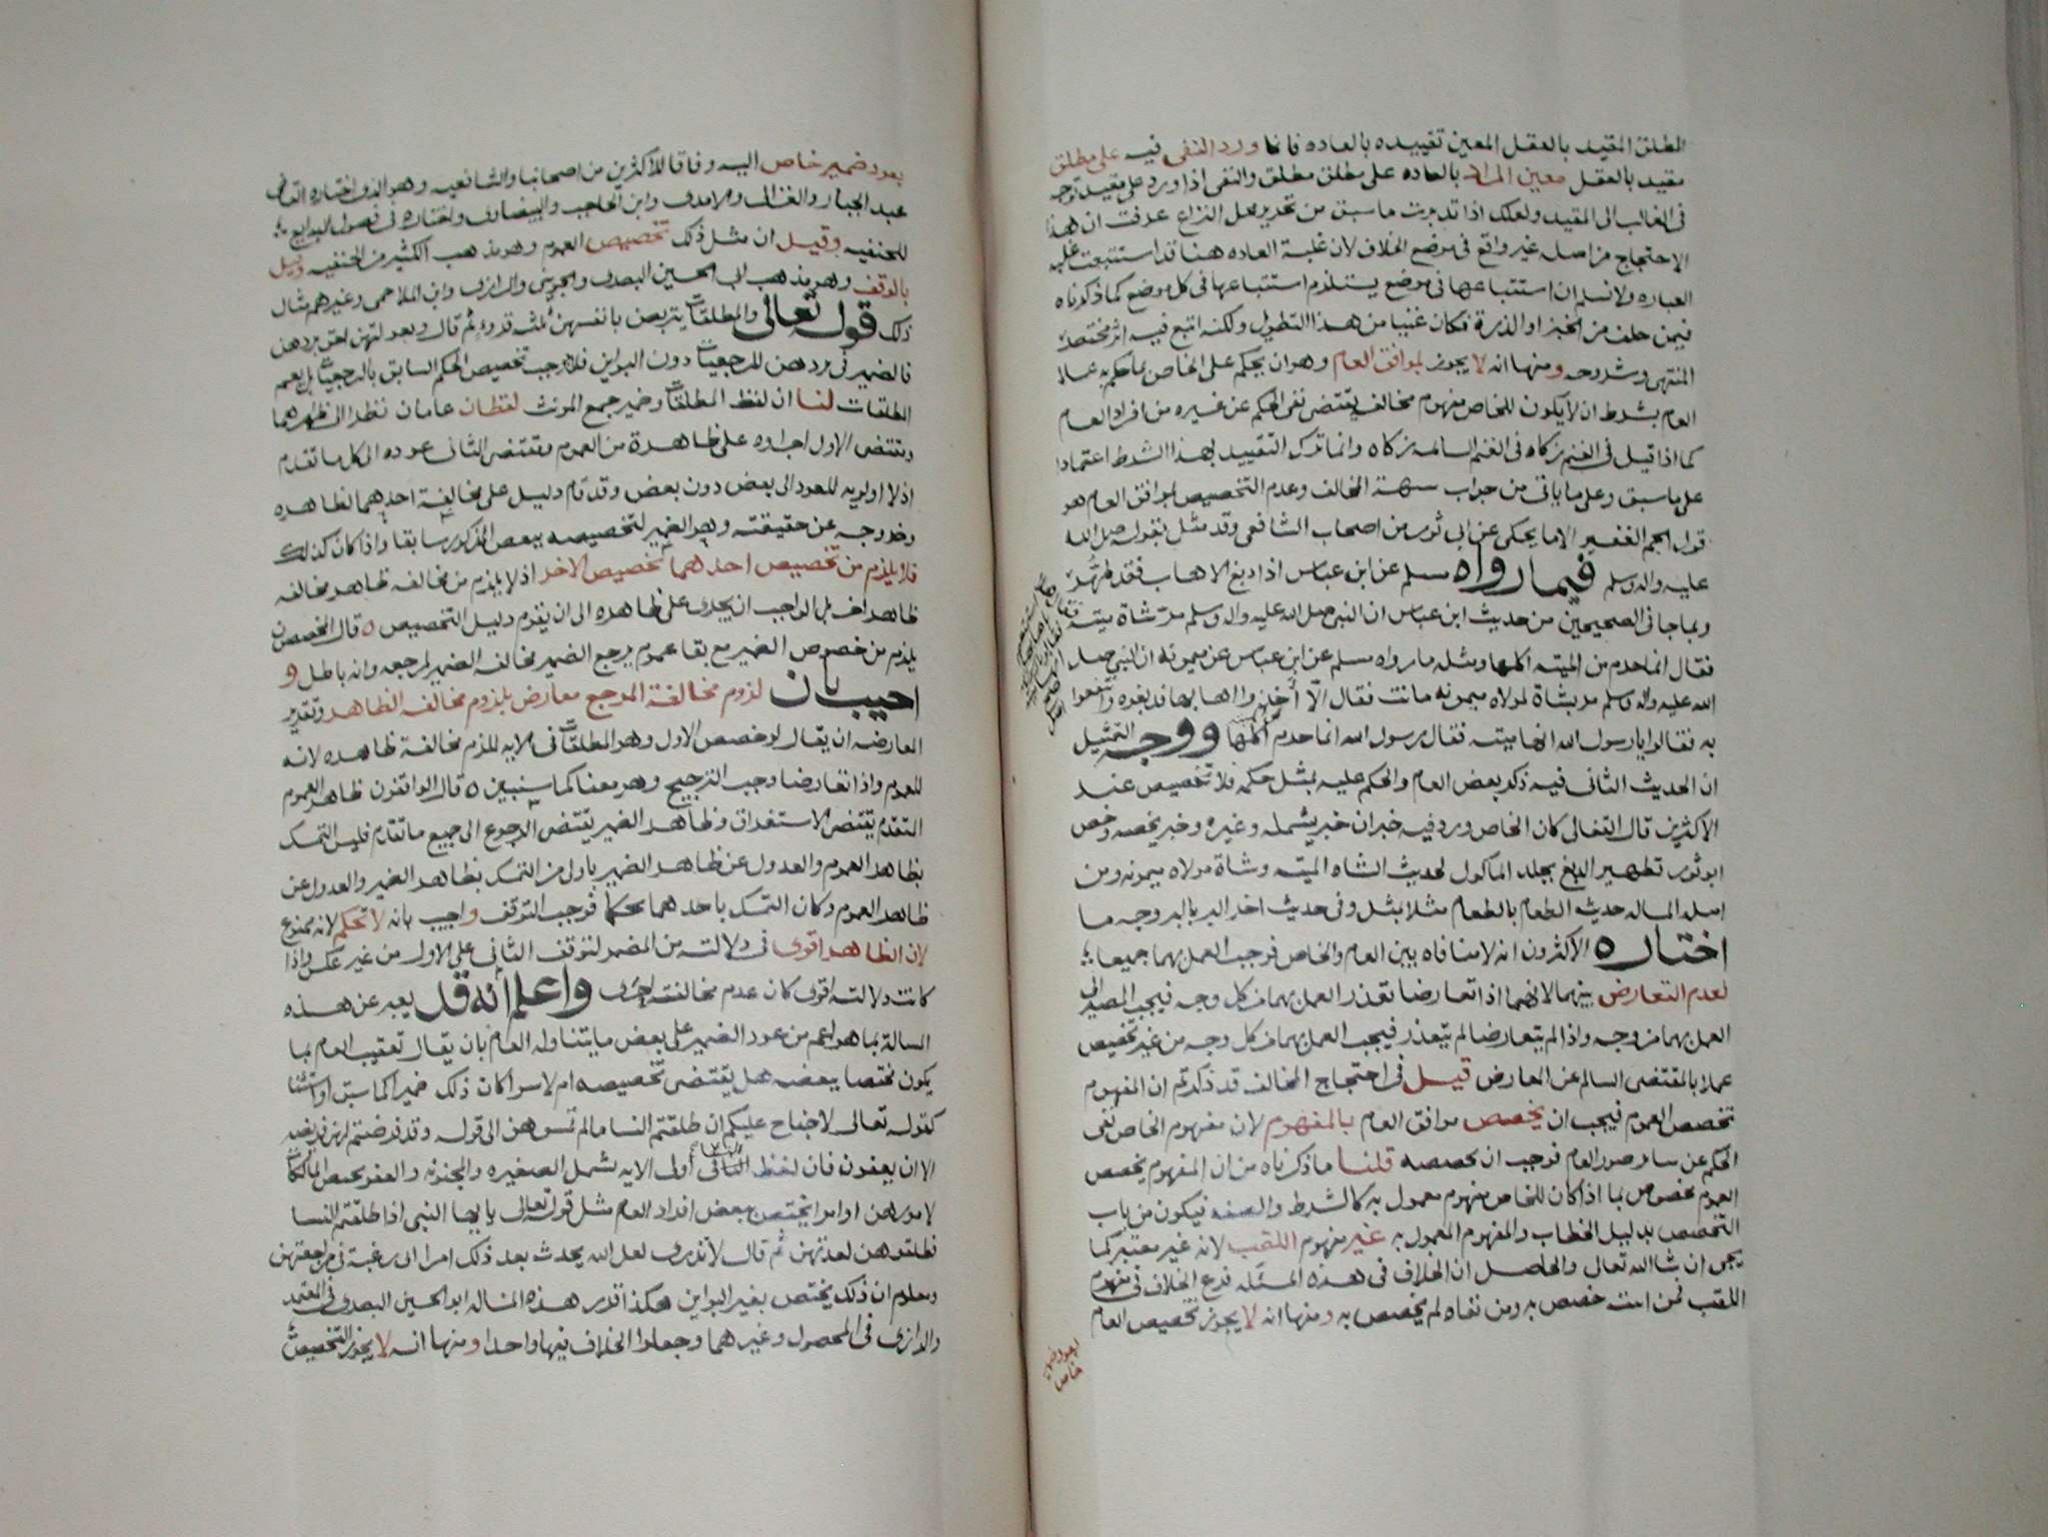 المطلق المقيد بالعقل المعين تقييده بالعاده فانما ورد النفى فيه على مطلق
مقيد بالعقل معين المراد بالعاده على مطلق مطلق والنفى اذا ورد على مقيد توجه
فى الغالب الى المقيد ولعلك اذا تدبرت ما سبق من تحرير محل النزاع عرفت ان هذا
الاحتجاج من اصله غير واقع فى موضع الخلاف لان غلبة العاده هنا قد استتبعت غلبه
العباره ولا نسلم ان استتباعها فى موضع يستلزم استتباعها فى كل موضع كما ذكرناه
فيمن حلف من الخبز او الذرة فكان غنيا من هذا التطويل ولكنه اتبع فيه اثر مختصر
المنتهى وشروحه ومنها انه لا يجوز بموافق العام وهو ان يحكم على الخاص بما حكم به على
العام بشرط ان لا يكون للخاص مفهوم مخالف يقتضى نفى الحكم عن غيره من افراد العام
كما اذا قيل فى الغنم زكاه فى الغنم السائمه زكاه وانما ترك التقييد بهذا الشرط اعتمادا
على ما سبق وعلى ما ياتى من جواب شبهة المخالف وعدم التخصيص بموافق العام هو
قول الجم الغفير الا ما يحكى عن ابى ثور من اصحاب الشافعى وقد مثل بقوله صلى الله
عليه واله وسلم فيما رواه مسلم عن ابن عباس اذا دبغ الاهاب فقد طهر
وبما جا فى الصحيحين من حديث ابن عباس ان النبى صلى الله عليه واله وسلم مر بشاة ميته
فقال انما حرم من الميته اكلها ومثله ما رواه مسلم عن ابن عباس عن ميمونه ان النبى صلى
الله عليه واله وسلم مر بشاة لمولاه ميمونه ماتت فقال الا أخذوا اهابها فدبغوه وانتفعوا
به فقالوا يا رسول الله انها ميته فقال رسول الله انما حرم اكلها ووجه التمثيل
ان الحديث الثانى فيه ذكر بعض العام والحكم عليه بمثل حكمه فلا تخصيص عند
الاكثرين قال القفالى كان الخاص ورد فيه خبران خبر يشمله وغيره وخبر يخصه وخص
ابو ثور تطهير الدبغ بجلد الماكول لحديث الشاه الميته وشاة مولاه ميمونه ومن
امثله المساله حديث الطعام بالطعام مثلا بمثل وفى حديث اخر البر بالبر وجه ما
اختاره الاكثرون انه لا منافاه بين العام والخاص فوجب العمل بهما جميعا
لعدم التعارض بينهما لانهما اذا تعارضا تعذر العمل بهما من كل وجه فيجب المصير الى
العمل بهما من وجه واذا لم يتعارضا لم يتعذر فيجب العمل بهما من كل وجه من غير تخصيص
عملا بالمقتضى السالم عن المعارض قيل فى احتجاج المخالف قد ذكرتم ان المفهوم
تخصص العموم فيجب ان يخصص موافق العام بالمفهوم لان مفهوم الخاص نفى
الحكم عن سائر صور العام فوجب ان يخصصه قلنا ما ذكرناه من ان المفهوم يخصص
العموم مخصوص بما اذا كان للخاص مفهوم معمول به كالشرط والصفه فيكون من باب
التخصيص بدليل الخطاب والمفهوم المعمول به غير مفهوم اللقب لانه غير معتبر كما
يجى ان شا الله تعالى والحاصل ان الخلاف فى هذه المسئله فرع الخلاف فى مفهوم
اللقب فمن اثبته خصص به ومن نفاه لم يخصص به ومنها انه لا يجوز تخصيص العام
بعود ضمير
خاص
بعود ضمير خاص اليه وفاقا للاكثرين من اصحابنا والشافعيه وهو الذى اختاره القاضى
عبد الجبار والغزالى والامدى وابن الحاجب والبيضاوى واختاره فى فصول البدايع
للحنفيه وقيل ان مثل ذلك تخصيص العموم وهو مذهب الكثير من الحنفيه وقيل
بالوقف وهو مذهب ابى الحسين البصرى والجوينى والرازى وابن الملاحمى وغيرهم مثال
ذلك قوله تعالى والمطلقات يتربصن بانفسهن ثلثه قروء ثم قال وبعولتهن احق بردهن
فالضمير فى بردهن للرجعيات دون البواين فلا يوجب تخصيص الحكم السابق بالرجعيات بل يعم
المطلقات لنا ان لفظ المطلقات وضمير جمع المونث لفظان عامان نظرا الى ظاهرهما
ومقتضى الاول اجراوه على ظاهرة من العموم ومقتضى الثانى عوده الى كل ما تقدم
اذ لا اولويه للعود الى بعض دون بعض وقد قام دليل على مخالفة احدهما لظاهره
وخروجه عن حقيقته وهو الضمير لتخصيصه ببعض المذكور سابقا واذا كان كذلك
فلا يلزم من تخصيص احدهما تخصيص الاخر اذ لا يلزم من مخالفه ظاهر مخالفه
ظاهر اخر بل الواجب ان يجرى على ظاهره الى ان يقوم دليل التخصيص ٥ قال المخصصون
يلزم من خصوص الضمير مع بقا عموم مرجع الضمير مخالفه الضمير لمرجعه وانه باطل و
اجيب بان لزوم مخالفة المرجع معارض بلزوم مخالفه الظاهر وتقدير
المعارضه ان يقال لو خصص الاول وهو المطلقات فى الايه للزم مخالفة ظاهره لانه
للعموم واذا تعارضا وجب الترجيح وهو معنا كما سنبين ٥ قال الواقفون ظاهر العموم
المتقدم يقتضى الاستغراق وظاهر الضمير يقتضى الرجوع الى جميع ما تقدم فليس التمسك
بظاهر العموم والعدول عن ظاهر الضمير باولى من التمسك بظاهر الضمير والعدول عن
ظاهر العموم وكان التمسك باحدهما تحكما فوجب التوقف واجيب بانه لا تحكم لانه ممنوع
لان الظاهر اقوى فى دلالته من المضمر لتوقف الثانى على الاول من غير عكس واذا
كانت دلالته اقوى كان عدم مخالفته احرى واعلم انه قد يعبر عن هذه
المسالة بما هو اعم من عود الضمير على بعض ما يتناوله العام بان يقال تعقيب العام بما
يكون مختصا ببعضه هل يقتضى تخصيصه ام لا سوا كان ذلك ضميرا كما سبق او استثنا
كقوله تعالى لا جناح عليكم ان طلقتم النسا ما لم تمسوهن الى قوله وقد فرضتم لهن فريضه
الا ان يعفون فان لفظ النسا فى اول الايه يشمل الصغيره والمجنونه والعفو يختص المالكات
لامورهن او امرا يختص ببعض افراد العام مثل قوله تعالى يا ايها النبى اذا طلقتم النسا
فطلقوهن لعدتهن ثم قال لا تدرى لعل الله يحدث بعد ذلك امرا اى رغبة فى مراجعتهن
ومعلوم ان ذلك يختص بغير البواين هكذا قرر هذه المساله ابو الحسين البصرى فى المعتمد
والرازى فى المحصول وغيرهما وجعلوا الخلاف فيها واحدا ومنها انه لا يجوز التخصيص